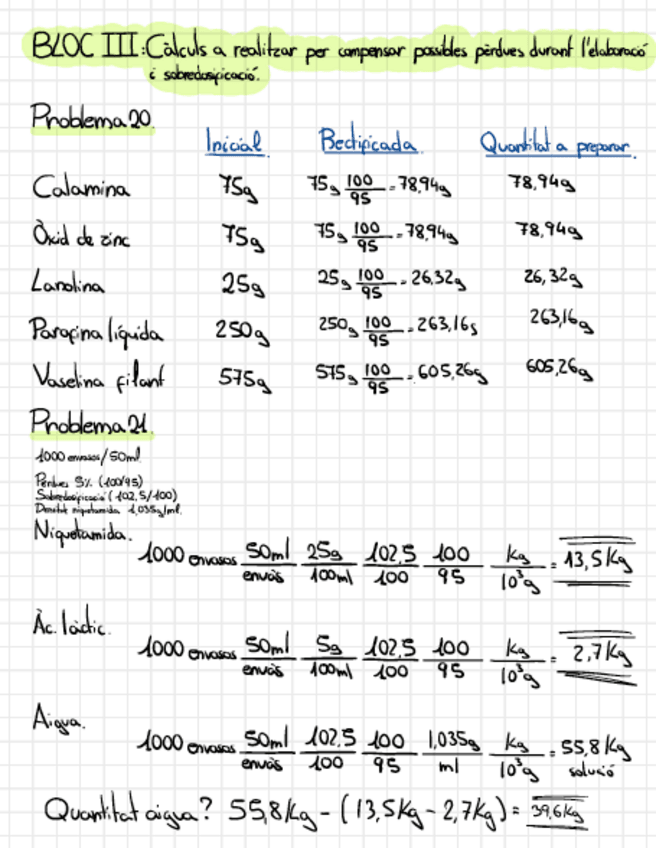 BLOC III: Càlculs a realitzar per compensar possibles pèrdues durant l'elaboració
i sobredosificació.
Problema 20.
Inicial Rectificada Quantitat a preparar.
Calamina 75g 75g 100/95 = 78,94g 78,94g
Òxid de zinc 75g 75g 100/95 = 78,94g 78,94g
Lanolina 25g 25g 100/95 = 26,32g 26,32g
Parafina líquida 250g 250g 100/95 = 263,16g 263,16g
Vaselina filant 575g 575g 100/95 = 605,26g 605,26g
Problema 21.
1000 envasos/50ml
Pèrdues 5% (100/95)
Sobredosificació (102,5/100)
Densitat niquetamida 1,035g/ml.
Niquetamida.
1000 envasos 50ml/envàs 25g/100ml 102,5/100 100/95 Kg/10³g = 13,5Kg
Àc. làctic.
1000 envasos 50ml/envàs 5g/100ml 102,5/100 100/95 Kg/10³g = 2,7Kg
Aigua.
1000 envasos 50ml/envàs 102,5/100 100/95 1,035g/ml Kg/10³g = 55,8Kg
solució
Quantitat aigua? 55,8Kg - (13,5Kg - 2,7Kg) = 39,6Kg